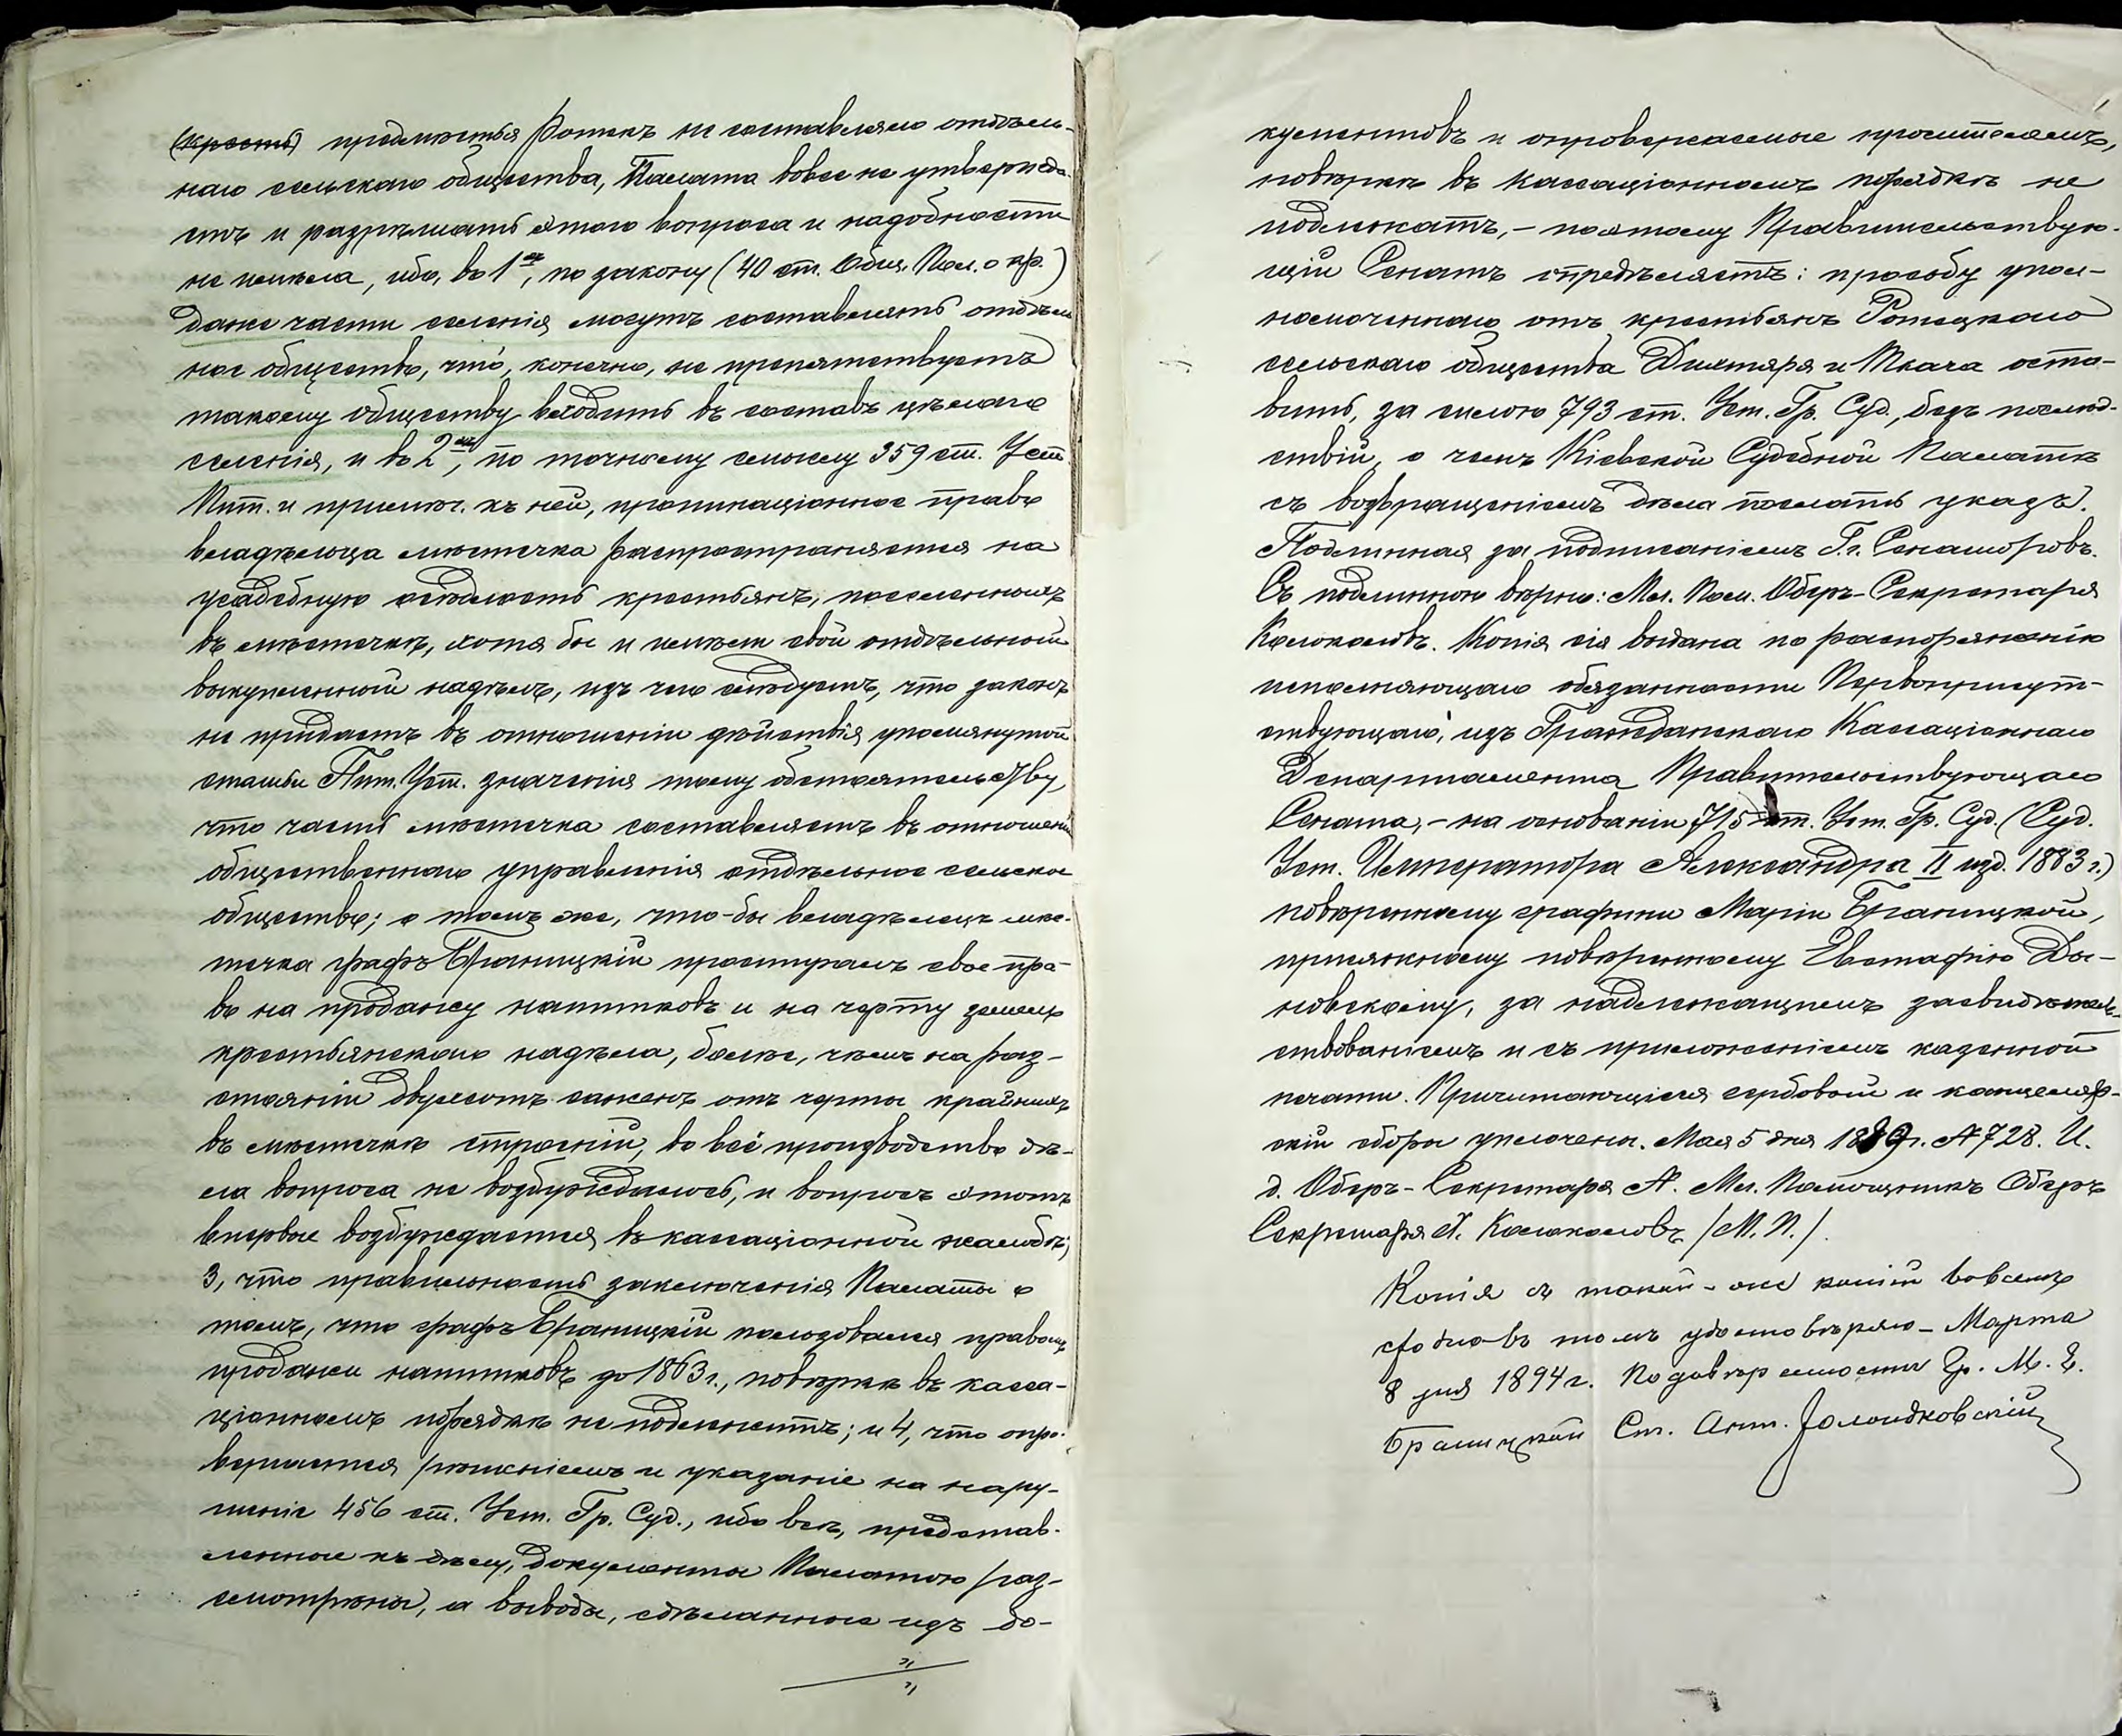 (крость) предмѣстья Ротокъ не составляло отдѣль-
наго сельскаго общества, Палата вовсе не утвержда-
етъ и разрѣшать этого вопроса и надобности
не имѣла, ибо, во 1хъ, по закону (40 ст. Общ. Пол. о кр.)
даже части селенія могутъ составлять отдѣль
ное общество, что, конечно, не препятствуетъ
такому обществу входить въ составъ цѣлаго
селенія, и во 2хъ, по точному смыслу 359 ст. Уст
Пит. и примѣч. къ ней, пропинаціонное право
владѣльца мѣстечка распространяется на
усадебную осѣдлость крестьянъ, поселенныхъ
въ мѣстечкѣ, хотя бы и имѣли свой отдѣльный
выкупленный надѣлъ, изъ чего слѣдуетъ, что законъ
не придаетъ въ отношеніи дѣйствія упомянутой
статьи Пит. Уст. значенія тому обстоятельству,
что часть мѣстечка составляетъ въ отношеніи
общественнаго управленія отдѣльное сельское
общество; о томъ же, что-бы владѣлецъ мѣс-
течка графъ Браницкій простиралъ свое пра-
во на продажу напитковъ и на черту земель
крестьянскаго надѣла, болѣе, чѣмъ на раз-
стояніи двухсотъ саженъ отъ черты крайнихъ
въ мѣстечкѣ строеній, во всё производство дѣ-
ла вопроса не возбуждалось, и вопросъ этотъ
впервые возбуждается въ кассаціонной жалобѣ;
3, что правильность заключенія Палаты о
томъ, что графъ Браницкій пользовался правомъ
продажи напитковъ до 1863 г., повѣркѣ въ касса-
ціонномъ порядкѣ не подлежитъ; и 4, что опро-
вергается рѣшеніемъ и указаніе на нару-
шеніе 456 ст. Уст. Гр. Суд., ибо всѣ, представ-
ленные къ дѣлу, документы Палатою раз-
смотрѣны, а выводы, сдѣланные изъ до-
кументовъ и опровергаемые просителемъ,
повѣркѣ въ кассаціонномъ порядкѣ не
подлежатъ, – поэтому Правительствую-
щій Сенатъ опредѣляетъ: просьбу упол-
номоченнаго отъ крестьянъ Ротокскаго
сельскаго общества Дихтяря и Ткача оста-
вить, за силою 793 ст. Уст. Гр. Суд., безъ послѣд-
ствій, о чемъ Кіевской Судебной Палатѣ
съ возвращеніемъ дѣла послать указъ.
Подлинная за подписаніемъ Г.г. Сенаторовъ.
Съ подлиннымъ вѣрно: Мл. Пом. Оберъ-Секретаря
Колоколовъ. Копія сія выдана по распоряженію
исполняющаго обязанности Первоприсут-
ствующаго, изъ Гражданскаго Кассаціоннаго
Департамента Правительствующаго
Сената, – на основаніи 715 ст. Уст. Гр. Суд. (Суд.
Уст. Императора Александра II изд. 1883 г.)
повѣренному графини Маріи Браницкой,
присяжному повѣренному Евстафію Ды-
новскому, за надлежащимъ засвидѣтель-
ствованіемъ и съ приложеніемъ казенной
печати. Причитающіеся гербовый и канцеляр-
скій сборы уплочены. Мая 5 дня 1889 г. № 728. И.
д. Оберъ-Секретаря А. Мл. Помощникъ Оберъ
Секретаря А. Колоколовъ /М.П./.
Копія съ такой-же копіи вовсемъ
сходна въ томъ удостовѣряю – Марта
8 дня 1894 г. По довѣренности Гр. М. Е.
Браницкой Ст. Ант.